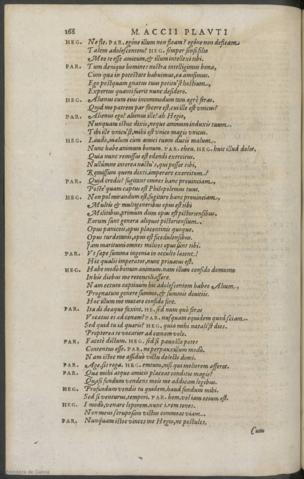 168 M. ACCII PLAVTI
HEG. Ne fle. PAR. egóne illum non fleam? egóne non defleam
Talem adolescentem? HEG. semper sensi filio
Meo te esse amicum, & illum intellexi tibi.
PAR. Tum denique homines nostra intelligimus bona,
Cum quæ in potestate habuimus, ea amisimus.
Ego postquam gnatus tuus potitu'st hostium,
Expertus quanti fuerit nunc desidero.
HEG. Alienus cum eius incommodum tam ægrè feras,
Quid me patrem par facere est, cui ille est unicus?
PAR. Alienus ego? alienus ille? ah Hegio,
Nunquam istuc dixis, neque animum induxis tuum.
Tibi ille unicu'st, mihi etiam unico magis unicus.
HEG. Laudo, malum cum amici tuum ducis malum.
Nunc habe animum bonum. PAR. eheu. HEG. huic illud dolet,
Quia nunc remissus est edendi exercitus.
Nullumne interea nactu's, qui posset tibi,
Remissum quem dixti imperare exercitum?
PAR. Quid credis? fugitant omnes hanc prouinciam,
Postquam captus est Philopolemus tuus.
HEG. Non pol mirandum est, fugitare hanc prouinciam,
Multis & multigeneribus opus est tibi
Militibus, primum dum opus est pistoriensibus.
Eorum sunt genera aliquot pistoriensium.
Opus paniceis, opus placentinis quoque,
Opus turdetanis, opus est ficedulensibus.
Iam maritumi omnes milites opus sunt tibi.
PAR. Vt sæpe summa ingenia in occulto latent!
Hic qualis imperator, nunc priuatus est.
HEG. Habe modò bonum animum. nam illum confido domum
In his diebus me reconciliassere.
Nam eccum captiuum hic adolescentem habeo Alium,
Prognatum genere summo, & summis diuitiis.
Hoc illum me mutare confido fore.
PAR. Ita di deæque faxint. HEG. sed num quò foras
Vocatus es ad cœnam? PAR. nusquam equidem quod sciam.
Sed quid tu id quæris? HEG. quia mihi natalis est dies.
Propterea te vocarier ad cœnam volo.
PAR. Facetè dictum. HEG. sed si pauxillo potes
Contentus esse. PAR. ne perpauxillum modò.
Nam istoc me assiduo victu delecto domi.
PAR. Age, si roga. HEG. emtum, nisi qui meliorem afferat.
PAR. Qua mihi atque amicis placeat conditio magis?
Quasi fundum vendam meis me addicam legibus.
HEG. Profundum vendis tu quidem, haud fundum mihi.
Sed si venturus, temperi. PAR. hem, vel iam otium est.
HEG. I modò, venare leporem. nunc irem tenes.
Non meus scruposam victus commeat viam.
PAR. Nunquam istoc vinces me Hegio, ne postules.
Cum